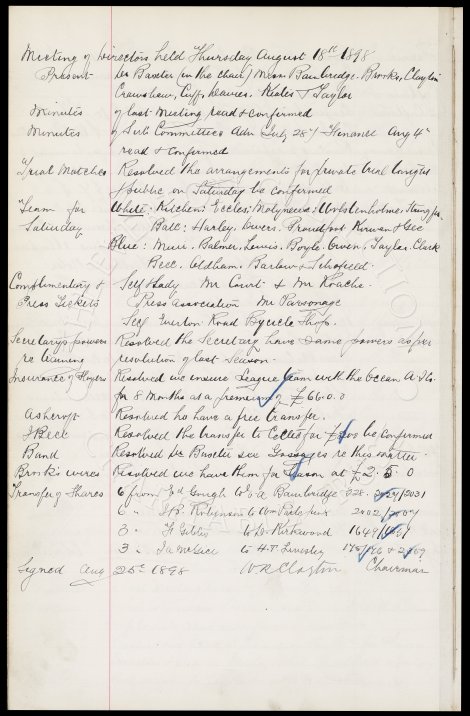 Meeting of Directors held Thursday August 18th 1898
Present Dr Baxter (in the chair) Messrs Bainbridge. Brooks, Clayton
Crawshaw, Cuff, Keates & Taylor
Minutes of last Meeting read & confirmed
Minutes of Sub Committees Adv July 28th & Finance Aug 4th
read & confirmed
"Trial Matches Resolved the arrangements for private trial tonight
& public on Saturday be confirmed
"Team for White: Kitchen: Eccles: Molyneux: Wolstenholme:
Saturday Ball: Harley, Owers. Proudfoot Kirwan & Gee
Blue: Muir. Balmer, Lewis, Boyle. Owen, Taylor. Clark
Bell. Oldham. Barlow & Schofield
Complimentary & Self & Lady Mr Court & Mr Roache.
Press Tickets Press association Mr Parsonage
Self Everton Road Bycicle Shop.
Secretarys powers Resolved the Secretary have same powers as per
re Training resolution of last season.
Insurance of Players Resolved we insure League team with the Ocean A & Co
for 8 Months at a premium of £66.0.0
Ashcroft Resolved he have a free transfer.
J Bell Resolved the transfer to Celtic for be confirmed
Band Resolved Dr Baxter see Gossages re this matter.
Brook's wires Resolved we have them for Season at £2.5.0
Transfer of Shares 6 from Jd Gough to Bainbridge 228. /2031
6 " J.P. Robinson to Wm 2402/
3 " F Gibbs to D. Kirkwood 1649/
3 " Jas Wallace to H.T. Lewesley
Signed Aug 25th 1898 W R Clayton Chairman